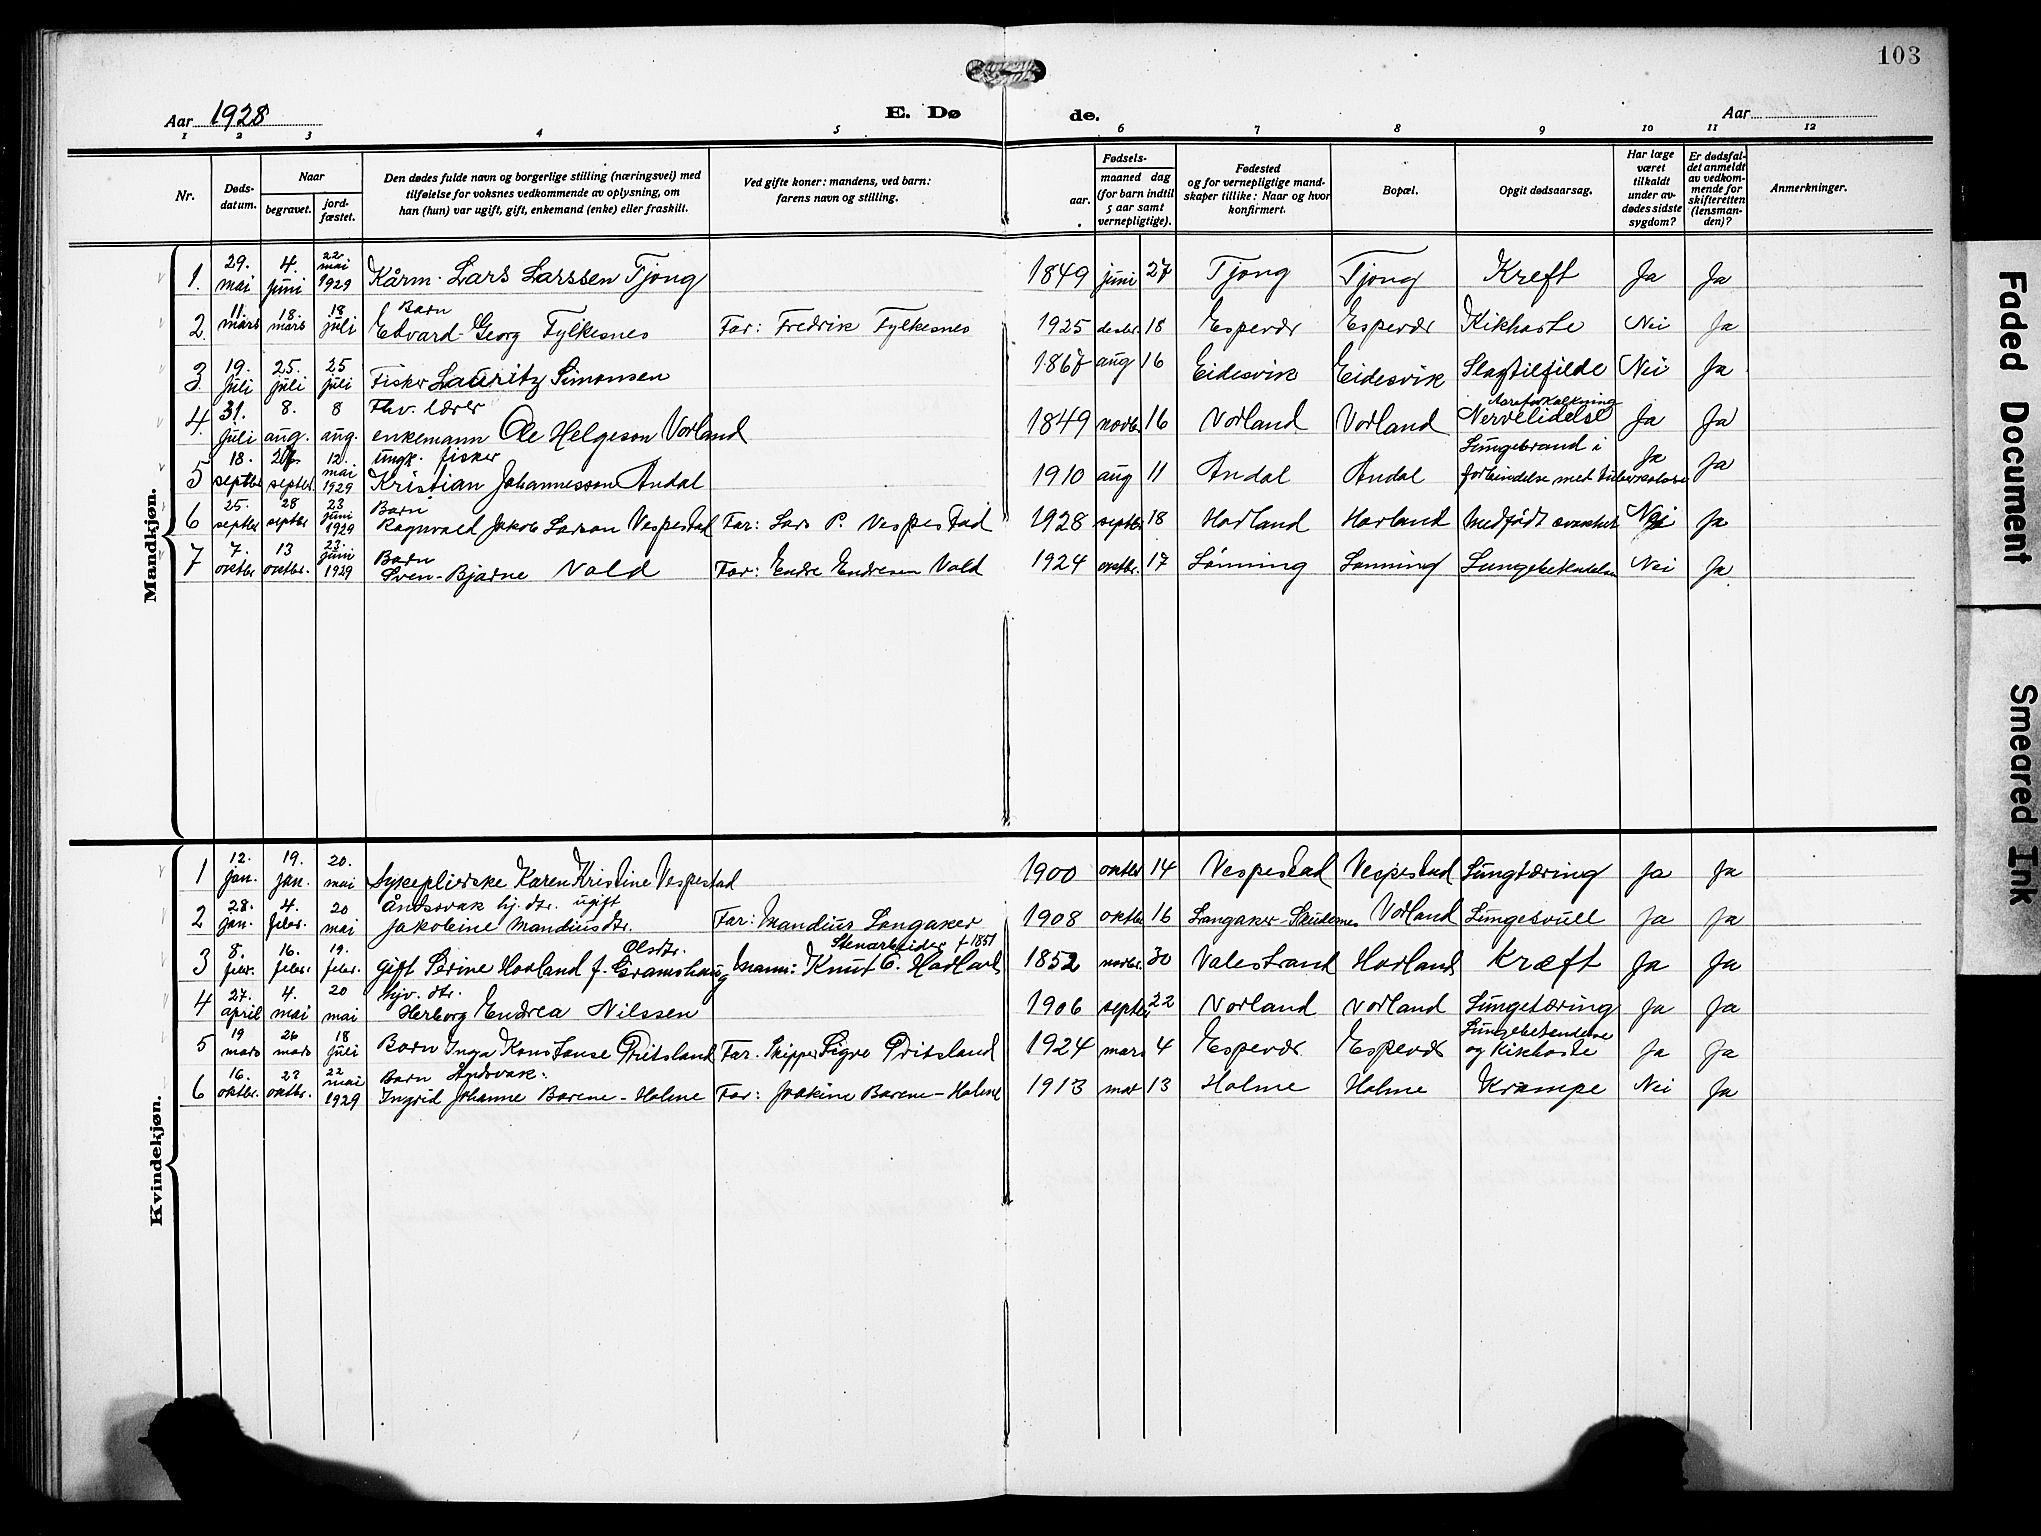 103
Aar 1928 E. Dø de. Aar
1 2 3 4 5 6 7 8 9 10 11 12
Nr. Døds-datum. Naar begravet. jord-fæstet. Den dødes fulde navn og borgerlige stilling (næringsvei) med tilføielse for voksnes vedkommende av oplysning, om han (hun) var ugift, gift, enkemand (enke) eller fraskilt. Ved gifte koner: mandens, ved barn: farens navn og stilling. Fødsels- aar. maaned dag (for barn indtil 5 aar samt vernepligtige). Fødested og for vernepligtige mand-skaper tillike: Naar og hvor konfirmert. Bopæl. Opgit dødsaarsag. Har læge været tilkaldt under av-dødes sidste sygdom? Er dødsfal-det anmeldt av vedkom-mende for skifteretten (lensman-den)? Anmerkninger.
Mandkjøn.
1. 29. mai 4. juni 22 mai 1929 Kårm. Lars Larssen Tjong 1849 juni 27 Tjong Tjong Kreft Ja Ja
2. 11 mars 18. mars 18 juli Barn Edvard Georg Fylkesnes Far: Fredrik Fylkesnes 1925 desbr. 18 Espevær Espevær Kikhoste Nei Ja
3. 19. juli 25. juli 25 juli Fisker Lauritz Simonsen 1867 aug 16 Eidesvik Eidesvik Slagtilfelde Nei Ja
4. 31. juli 8. aug. 8 aug. Fhv. lærer enkemann Ole Helgeson Vorland 1849 novbr. 16 Vorland Vorland Aareforkalkning Nervelidelse Ja Ja
5 18. septbr. septbr. 12. mai 1929 Ungk. fisker Kristian Johannessen Andal 1910 aug 11 Andal Andal Lungebrand i forbindelse med tuberculose Ja Ja
6 25. septbr 28 septbr 23 juni 1929 Barn Ragnvald Jakob Larson Vespestad Far: Lars P. Vespestad 1928 septbr. 18 Horland Horland Medfødt svakhet Nei Ja
7 7. oktbr 13 oktbr. 23. juni 1929 Barn Sven-Bjarne Vold Far: Endre Endresen Vold 1924 oktbr. 17 Lønning Lønning Lungebetendelse Nei Ja
Kvindekjøn.
1 12. jan. 19. jan. 20. mai Sykepleierske Karen Kristine Vespestad 1900 oktbr 14 Vespestad Vespestad Lungtæring Ja Ja
2 28. jan. 4. febr. 20 mai Åndssvak hj. dtr. ugift Jakobine Mandiusdtr. Far: Mandius Langaker 1908 oktbr 16 Langaker Vorland Lungesvull Ja Ja
3 8. febr. 16. febr. 19. febr. Olsdtr. gift Serine Horland f. Gramshaug Stenarbeider f 1851 Mann: Knut E. Horland 1852 novbr. 30 Valestrand Horland Kræft Ja Ja
4 27. april 4. mai 20 mai hjv. dtr. Herborg Endrea Nilssen 1906 septbr. 22 Vorland Vorland Lungetæring Ja Ja
5 19 mars 26 mars 18 juli Barn Inga Konstanse Øritsland Far. Skipper Sigve Øritsland 1924 mars 4 Espevær Espevær Lungebetendelse og Kikhoste Ja Ja
6 16. oktbr. 23 oktbr. 22 mai 1929 Barn Åndsvak. Ingrid Johanne Barene-Holme Far: Joakim Barene-Holme 1913 mai 13 Holme Holme Krampe Nei Ja
Faded Document
Smeared Ink